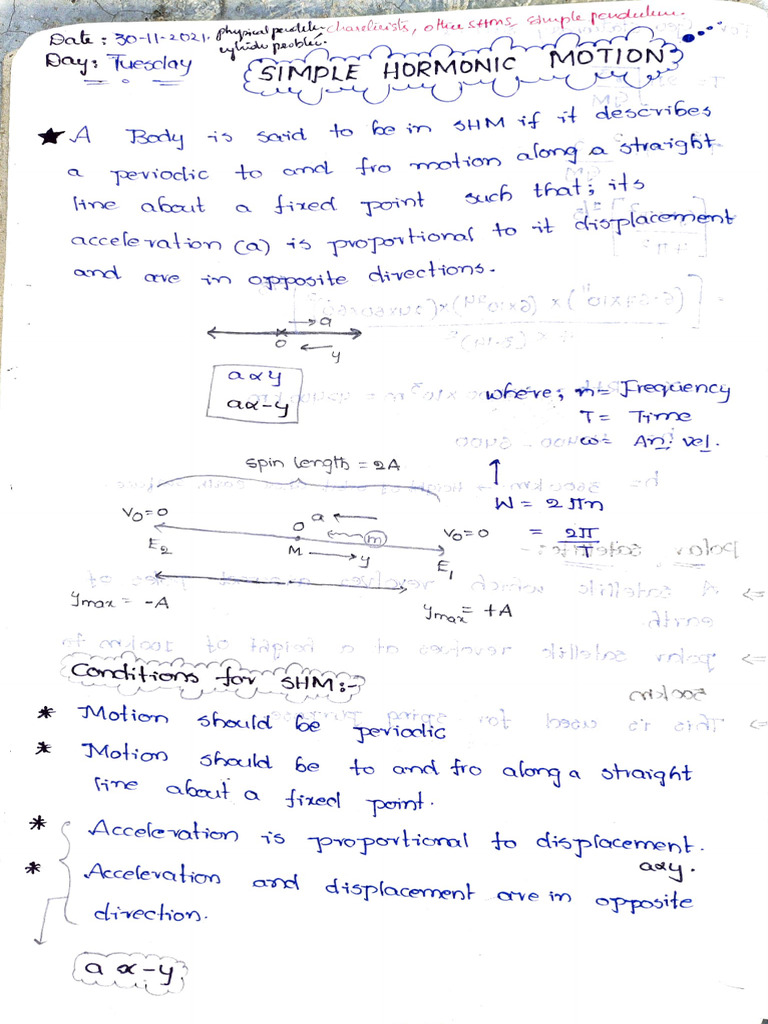 Date : 30-11-2021. physical pendulum characteristics, other SHMs, simple pendulum.
Day: Tuesday
SIMPLE HORMONIC MOTION
★ A Body is said to be in SHM if it describes
a periodic to and fro motion along a straight
line about a fixed point such that; its
acceleration (a) is proportional to it displacement
and are in opposite directions.
→a
O
← y
a∝y
a∝-y
where; n = Frequency
T = Time
ω = An. vel.
spin length = 2A
↑
W = 2πn
= 2π/T
V₀=0
E₂
a ←
O
m
M → y
V₀=0
E₁
ymax = -A
ymax = +A
Conditions for SHM:-
* Motion should be periodic
* Motion should be to and fro along a straight
line about a fixed point.
* Acceleration is proportional to displacement.
a∝y.
* Acceleration and displacement are in opposite
direction.
a ∝ -y